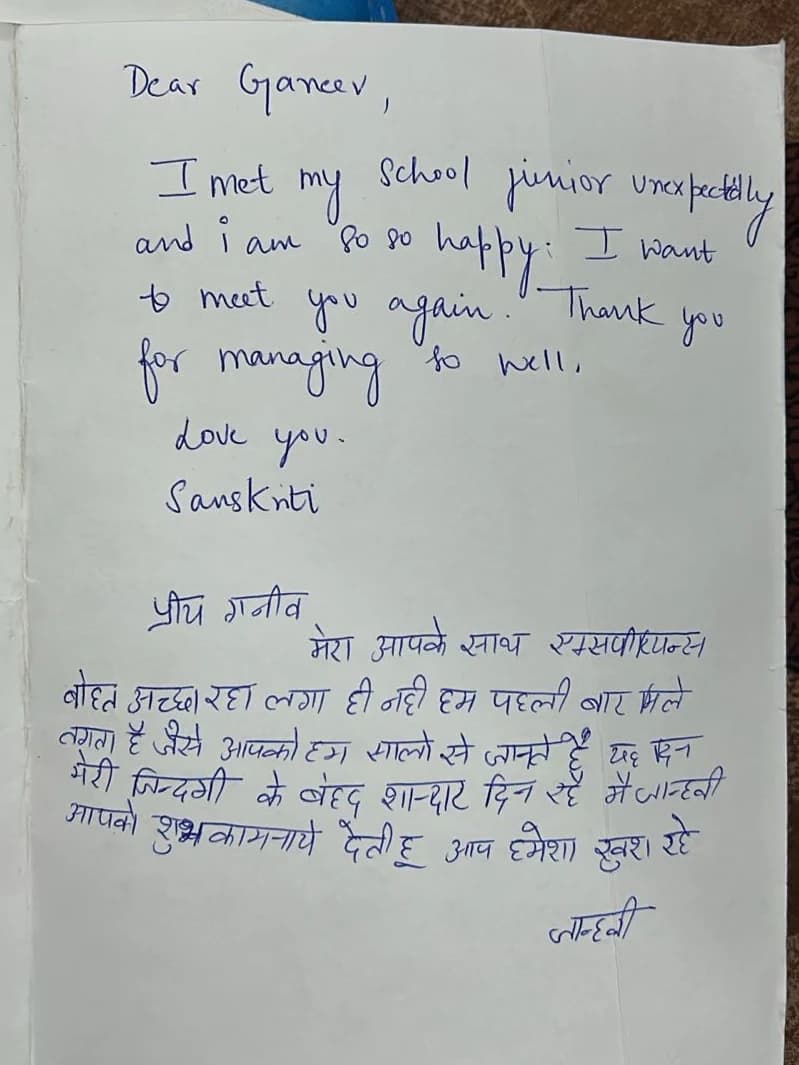 Dear Ganeev,
I met my school junior unexpectedly
and i am so so happy. I want
to meet you again. Thank you
for managing so well.
Love you.
Sanskriti
प्रीय गनीव
मेरा आपके साथ एक्सपीरियन्स
बोहत अच्छा रहा लगा ही नही हम पहली बार मिले
लगता है जैसे आपको हम सालो से जानते है यह दिन
मेरी जिन्दगी के बेहद शानदार दिन रहे मै जान्हवी
आपको शुभकामनाये देती हू आप हमेशा खुश रहे
जान्हवी